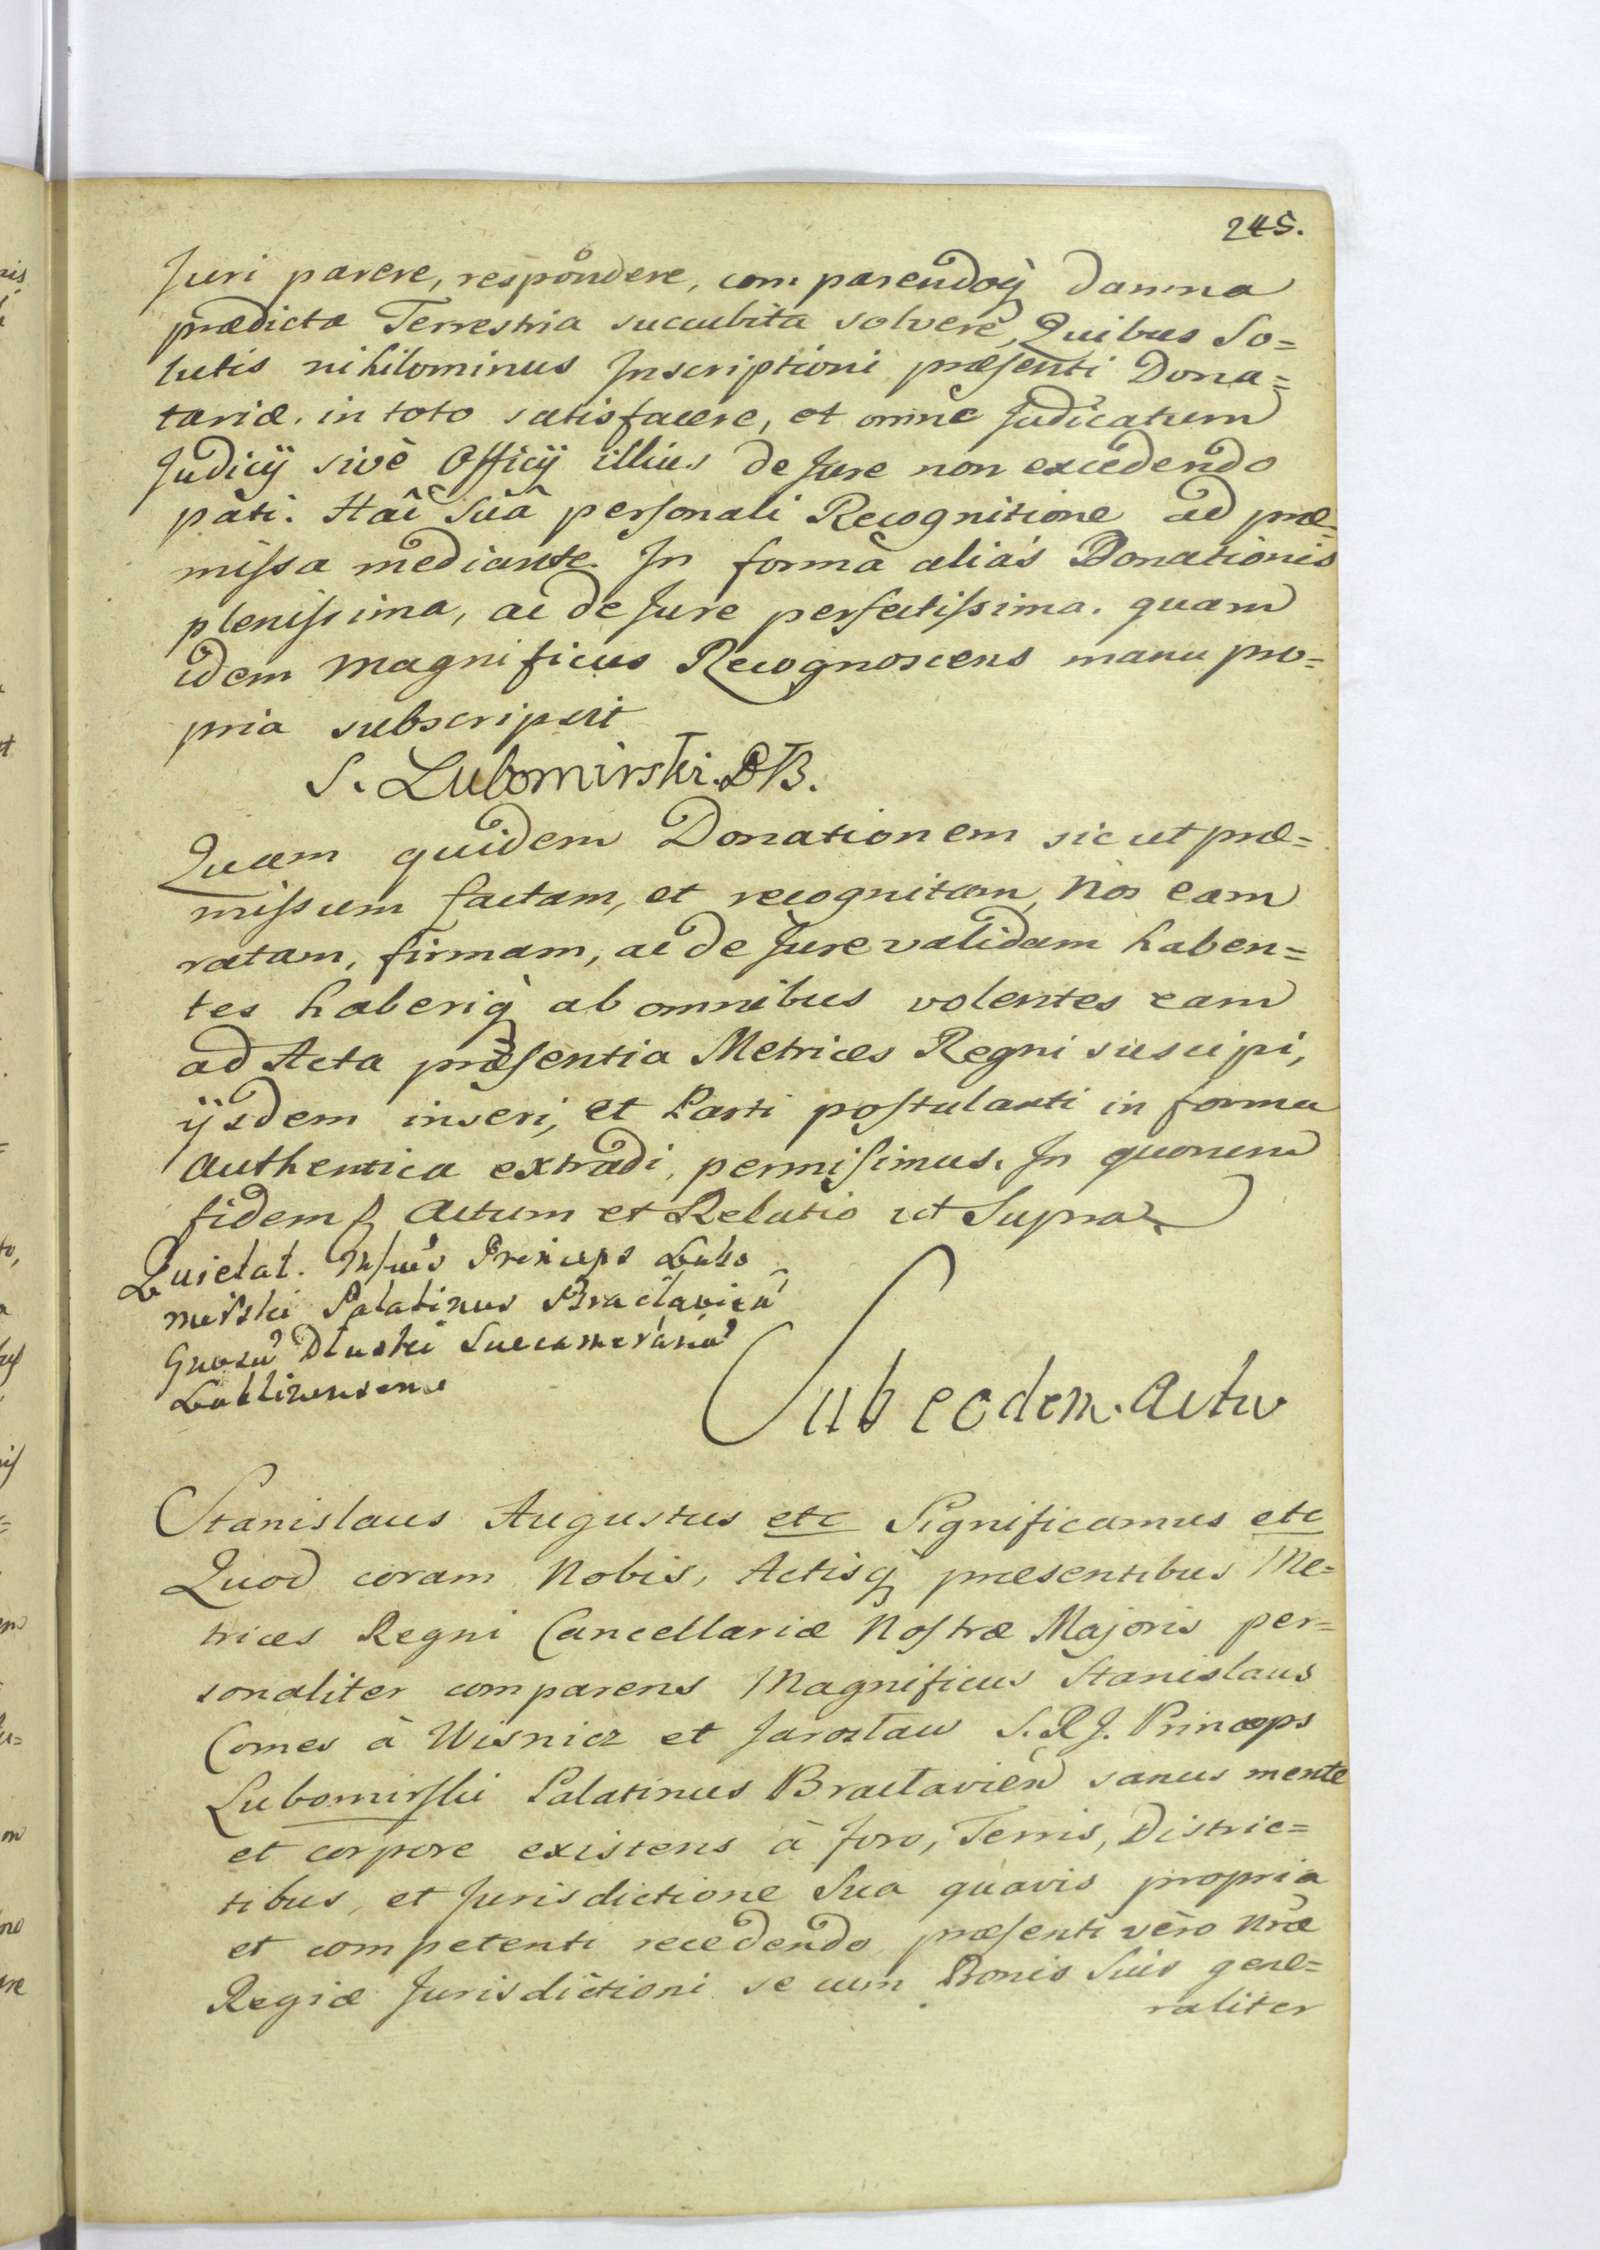 245.
Juri parere, respondere, comparendoq̀ damna
prædicta Terrestria succubita solvere, Quibus So=
lutis nihilominus Inscriptioni præsenti Dona=
tariæ. in toto satisfacere, et omne Judicatum
Judicÿ sivè Officÿ illius de Jure non excedendo
pati. Hac Suâ personali Recognitione ad præ=
missa mediante. In forma aliàs Donationis
plenissima, ac de Jure perfectissima. quam
idem Magnificus Recognoscens manu pro=
pria subscripsit
S. Lubomirski. WB.
Quam quidem Donationem sic ut præ=
missum factam, et recognitam, Nos eam
ratam, firmam, ac de Jure validam haben=
tes haberiq̀ ab omnibus volentes eam
ad Acta præsentia Metrices Regni suscipi,
ÿsdem inseri, et Parti postulanti in forma
authentica extradi, permisimus. In quorum
fidem Actum et Relatio ut Supra
Quietat. Princeps Lubo
mirski Palatinus Braclavien
Gnosu Dłuski Succamerariu
Lublinensem
Sub eodem. Actu
Stanislaus Augustus etc Significamus etc
Quod coram Nobis, Actisq̀ præsentibus Me=
trices Regni Cancellariæ Nostræ Majoris per=
sonaliter comparens Magnificus Stanislaus
Comes à Wisnicz et Jarosław S.R.J. Princeps
Lubomirski Palatinus Bracłavień sanus mente
et corpore existens à foro, Terris, Distric=
tibus, et Jurisdictione Sua quavis propria
et competenti recedendo, præsenti vèro Nræ
Regiæ Jurisdictioni se cum Bonis Suis gene=
raliter